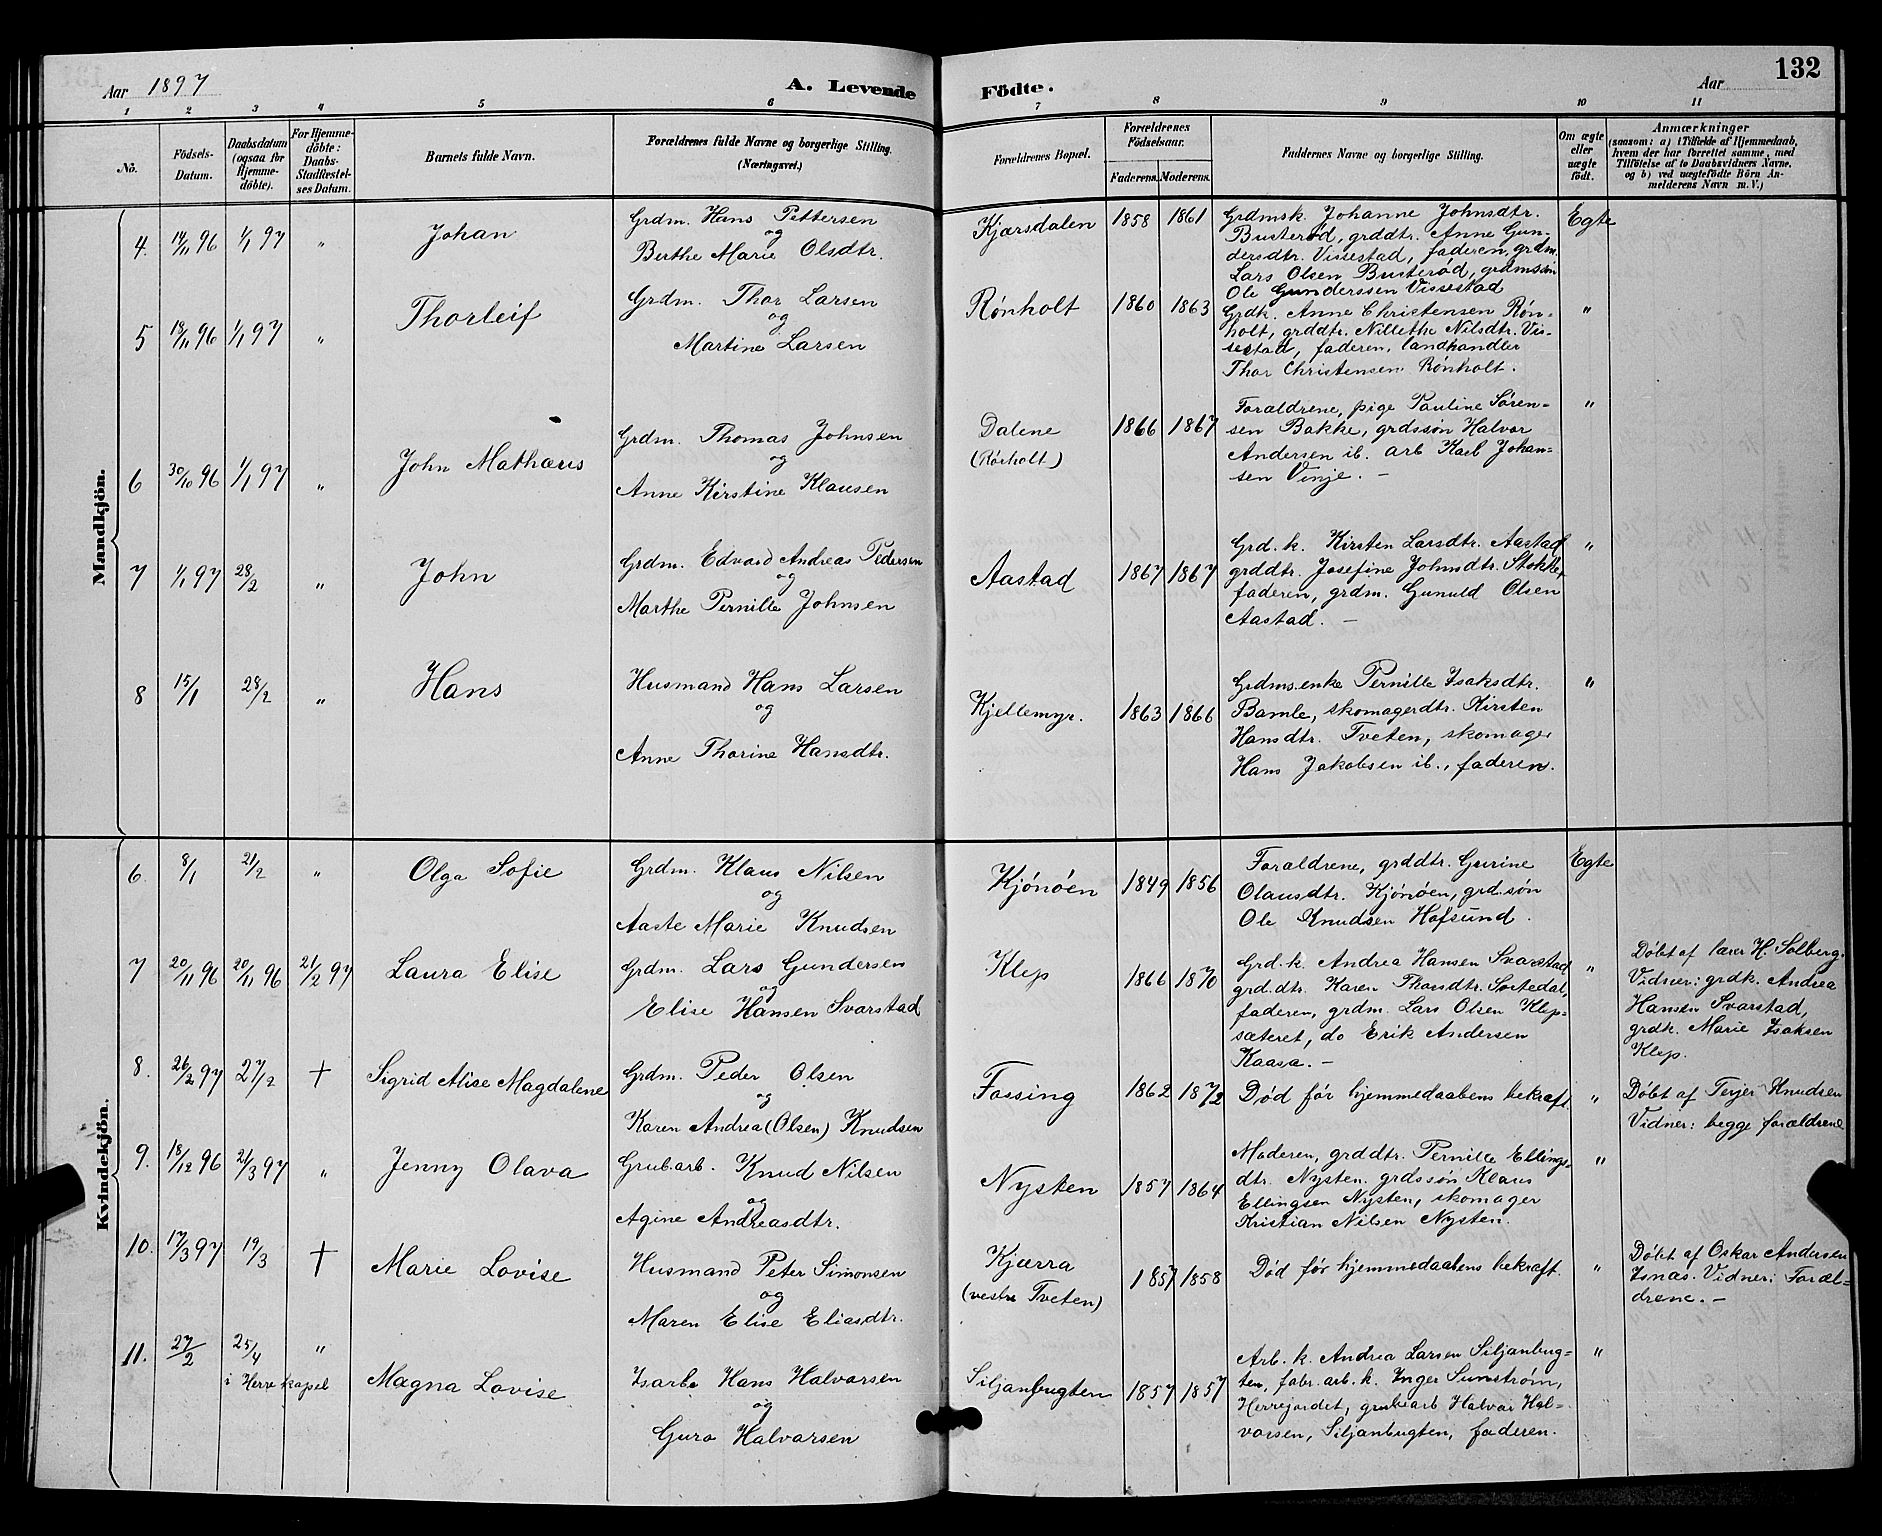 132
Aar 1897
A. Levende Födte.
Aar
1 2 3 4 5 6 7 8 9 10 11
No.
Födsels-
Datum.
Daabsdatum
(ogsaa for
Hjemme-
döbte).
For Hjemme-
döbte:
Daabs-
Stadfæstel-
ses Datum.
Barnets fulde Navn.
Forældrenes fulde Navne og borgerlige Stilling.
(Næringsvei.)
Forældrenes Bopæl.
Forældrenes
Födselsaar.
Faderens. Moderens.
Faddernes Navne og borgerlige Stilling.
Om ægte
eller
uægte
födt.
Anmærkninger
(saasom: a) i Tilfælde af Hjemmedaab,
hvem der har forrettet samme, med
Tilföielse af to Daabsvidners Navne,
og b) ved uægtefödte Börn An-
melderens Navn m. V.)
Mandkjön.
4. 14/11 96 1/1 97 " Johan
Grdm. Hans Pettersen
og
Berthe Marie Olsdtr.
Kjærsdalen 1858 1861
Grdmsk. Johanne Johnsdtr.
Busterød, grddtr. Anne Gun-
dersdtr. Vissestad, faderen, grdm.
Lars Olsen Busterød, grdmsøn
Ole Gunderssen Vissestad
Egte
5 18/11 96 1/1 97 " Thorleif
Grdm. Thor Larsen
og
Martine Larsen
Rønholt 1860 1863
Grdk. Anne Christensen Røn-
holt, grddtr. Nillethe Nilsdtr. Vis-
sestad, faderen, landhandler
Thor Christensen Rønholt.
"
6 30/10 96 1/1 97 " John Mathæus
Grdm. Thomas Johnsen
og
Anne Kirstine Klausen
Dalene
(Rørholt)
1866 1867
Forældrene, pige Pauline Søren-
sen Bakke, grdssøn Halvor
Andersen ib. arb Karl Johan-
sen Vinje. –
"
7 1/1 97 28/2 " John
Grdm. Edvard Andreas Pedersen
og
Marthe Pernille Johnsen
Aastad 1867 1867
Grd. k. Kirsten Larsdtr. Aastad
grddtr. Josefine Johnsdtr. Stokke,
faderen, grdm. Gunuld Olsen
Aastad. –
"
8 15/1 28/2 " Hans
Husmand Hans Larsen
og
Anne Thorine Hansdtr.
Kjellemyr. 1863 1866
Grdms.enke Pernille Isaksdtr.
Bamle, skomagerdtr. Kirsten
Hansdtr. Tveten, skomager
Hans Jakobsen ib., faderen.
"
Kvindekjön.
6. 8/1 21/2 " Olga Sofie
Grdm. Klaus Nilsen
og
Aaste Marie Knudsen
Kjönöen 1849 1856
Forældrene, grddtr. Gurine
Olausdtr. Kjönöen, grd.søn
Ole Knudsen Hafsund.
Egte
7 20/11 96 20/11 96 21/2 97 Laura Elise
Grdm. Lars Gundersen
og
Elise Hansen Svarstad
Klep 1866 1870
Grd.k. Andrea Hansen Svarstad
grd.dtr. Karen Thorsdtr. Sortedal,
faderen, grdm. Lars Olsen Klep-
sæteret, do Erik Andersen
Kaasa. –
"
Döbt af lærer H. Solberg.
Vidner: grdk. Andrea
Hansen Svarstad,
grdk. Marie Isaksen
Klep.
8. 26/2 97 27/2 † Sigrid Alise Magdalene
Grdm. Peder Olsen
og
Karen Andrea (Olsen) Knudsen
Fossing 1862 1872
Død før hjemmedaabens bekræft.
"
Döbt af Terjer Knudsen
Vidner: begge forældrene
9. 18/12 96 21/3 97 " Jenny Olava
Grubarb. Knud Nilsen
og
Agine Andreasdtr.
Nysten 1857 1864
Moderen, grddtr. Pernille Ellings-
dtr. Nysten. grdssøn Klaus
Ellingsen Nysten, skomager
Kristian Nilsen Nysten.
"
10. 17/3 97 19/3 † Marie Lovise
Husmand Peter Simonsen
og
Maren Elise Eliasdtr.
Kjærra
(vestre Tveten)
1857 1858
Død før hjemmedaabens bekræft.
"
Döbt af Oskar Andersen
Isnæs. Vidner: Foræl-
drene. –
11. 27/2 25/4 "
i Herre kapel
Magna Lovise
Isarb. Hans Halvorsen
og
Guro Halvorsen
Siljanbugten 1857 1857
Arb. k. Andrea Larsen Siljanbug-
ten, fabr. arb. k. Inger Sunström,
Herrejordet, grubearb Halvor Hal-
vorsen, Siljanbugten, faderen.
"